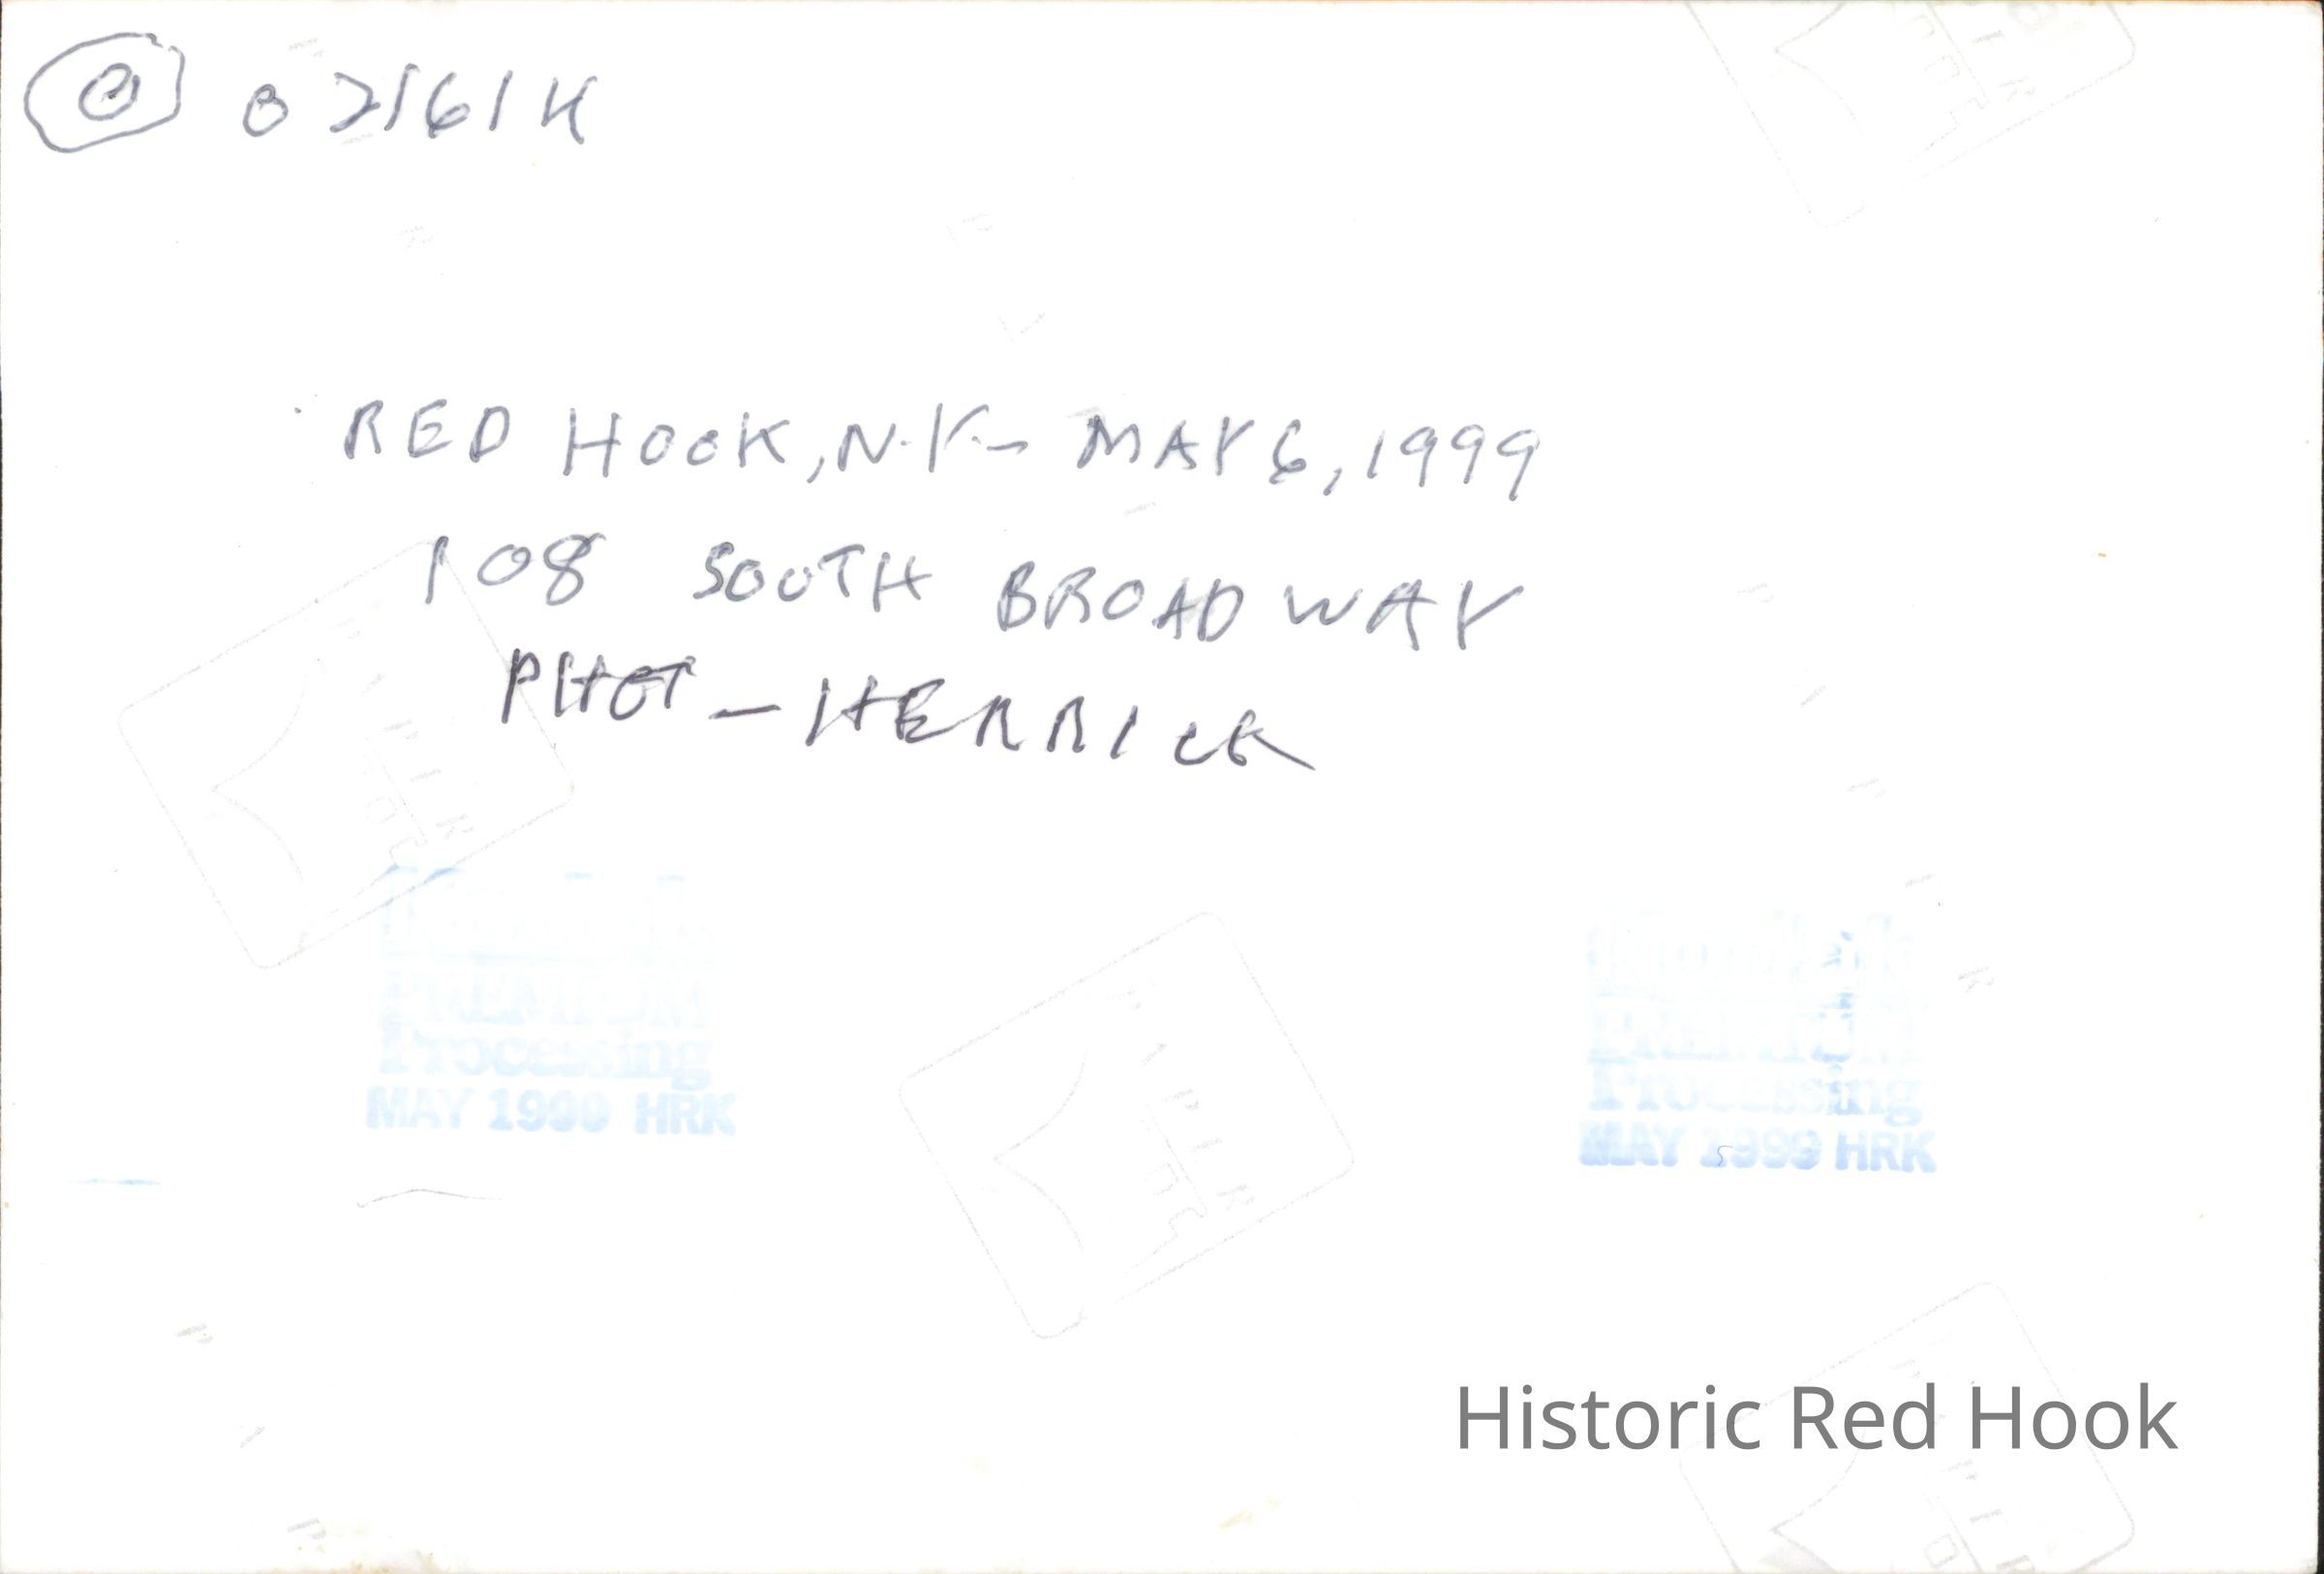 @ 02161K
RED HOOK, N.Y. - MAY 6, 1999
108 SOUTH BROADWAY
PHOT - HERRICK
PREMIUM
Processing
MAY 1999 HRK
PREMIUM
Processing
MAY 1999 HRK
Historic Red Hook